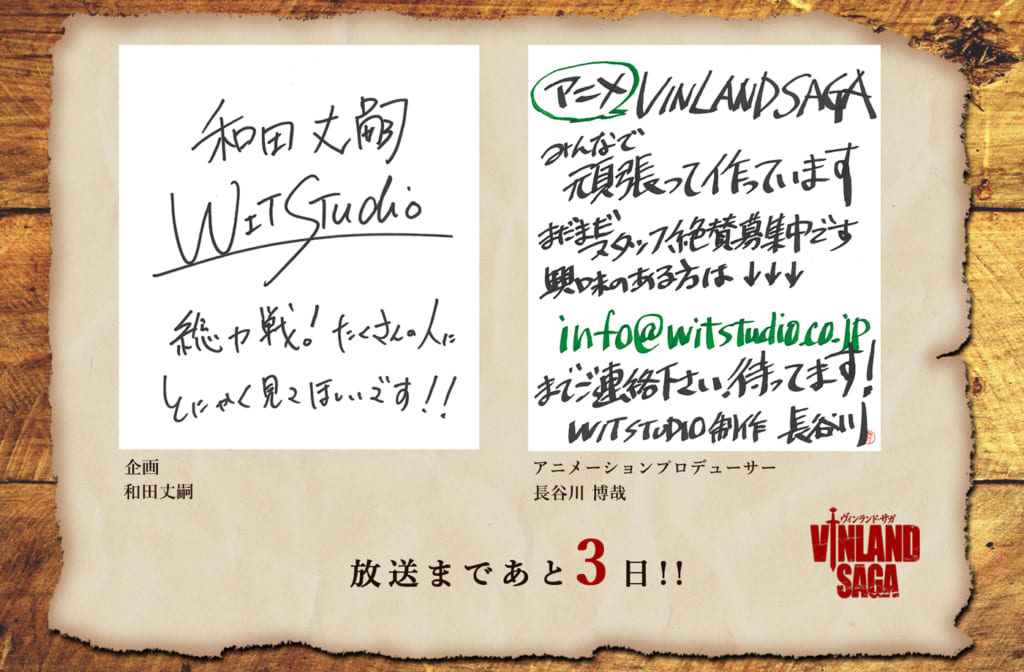 和田丈嗣
WIT STUDIO
総力戦！たくさんの人に
とにかく見てほしいです！！
企画
和田丈嗣
アニメ VINLAND SAGA
みんなで
頑張って作っています
まだまだスタッフ絶賛募集中です
興味のある方は↓↓↓
info@witstudio.co.jp
までご連絡下さい.待ってます!
WIT STUDIO 制作 長谷川
アニメーションプロデューサー
長谷川 博哉
放送まであと3日!!
ヴィンランド・サガ
VINLAND
SAGA